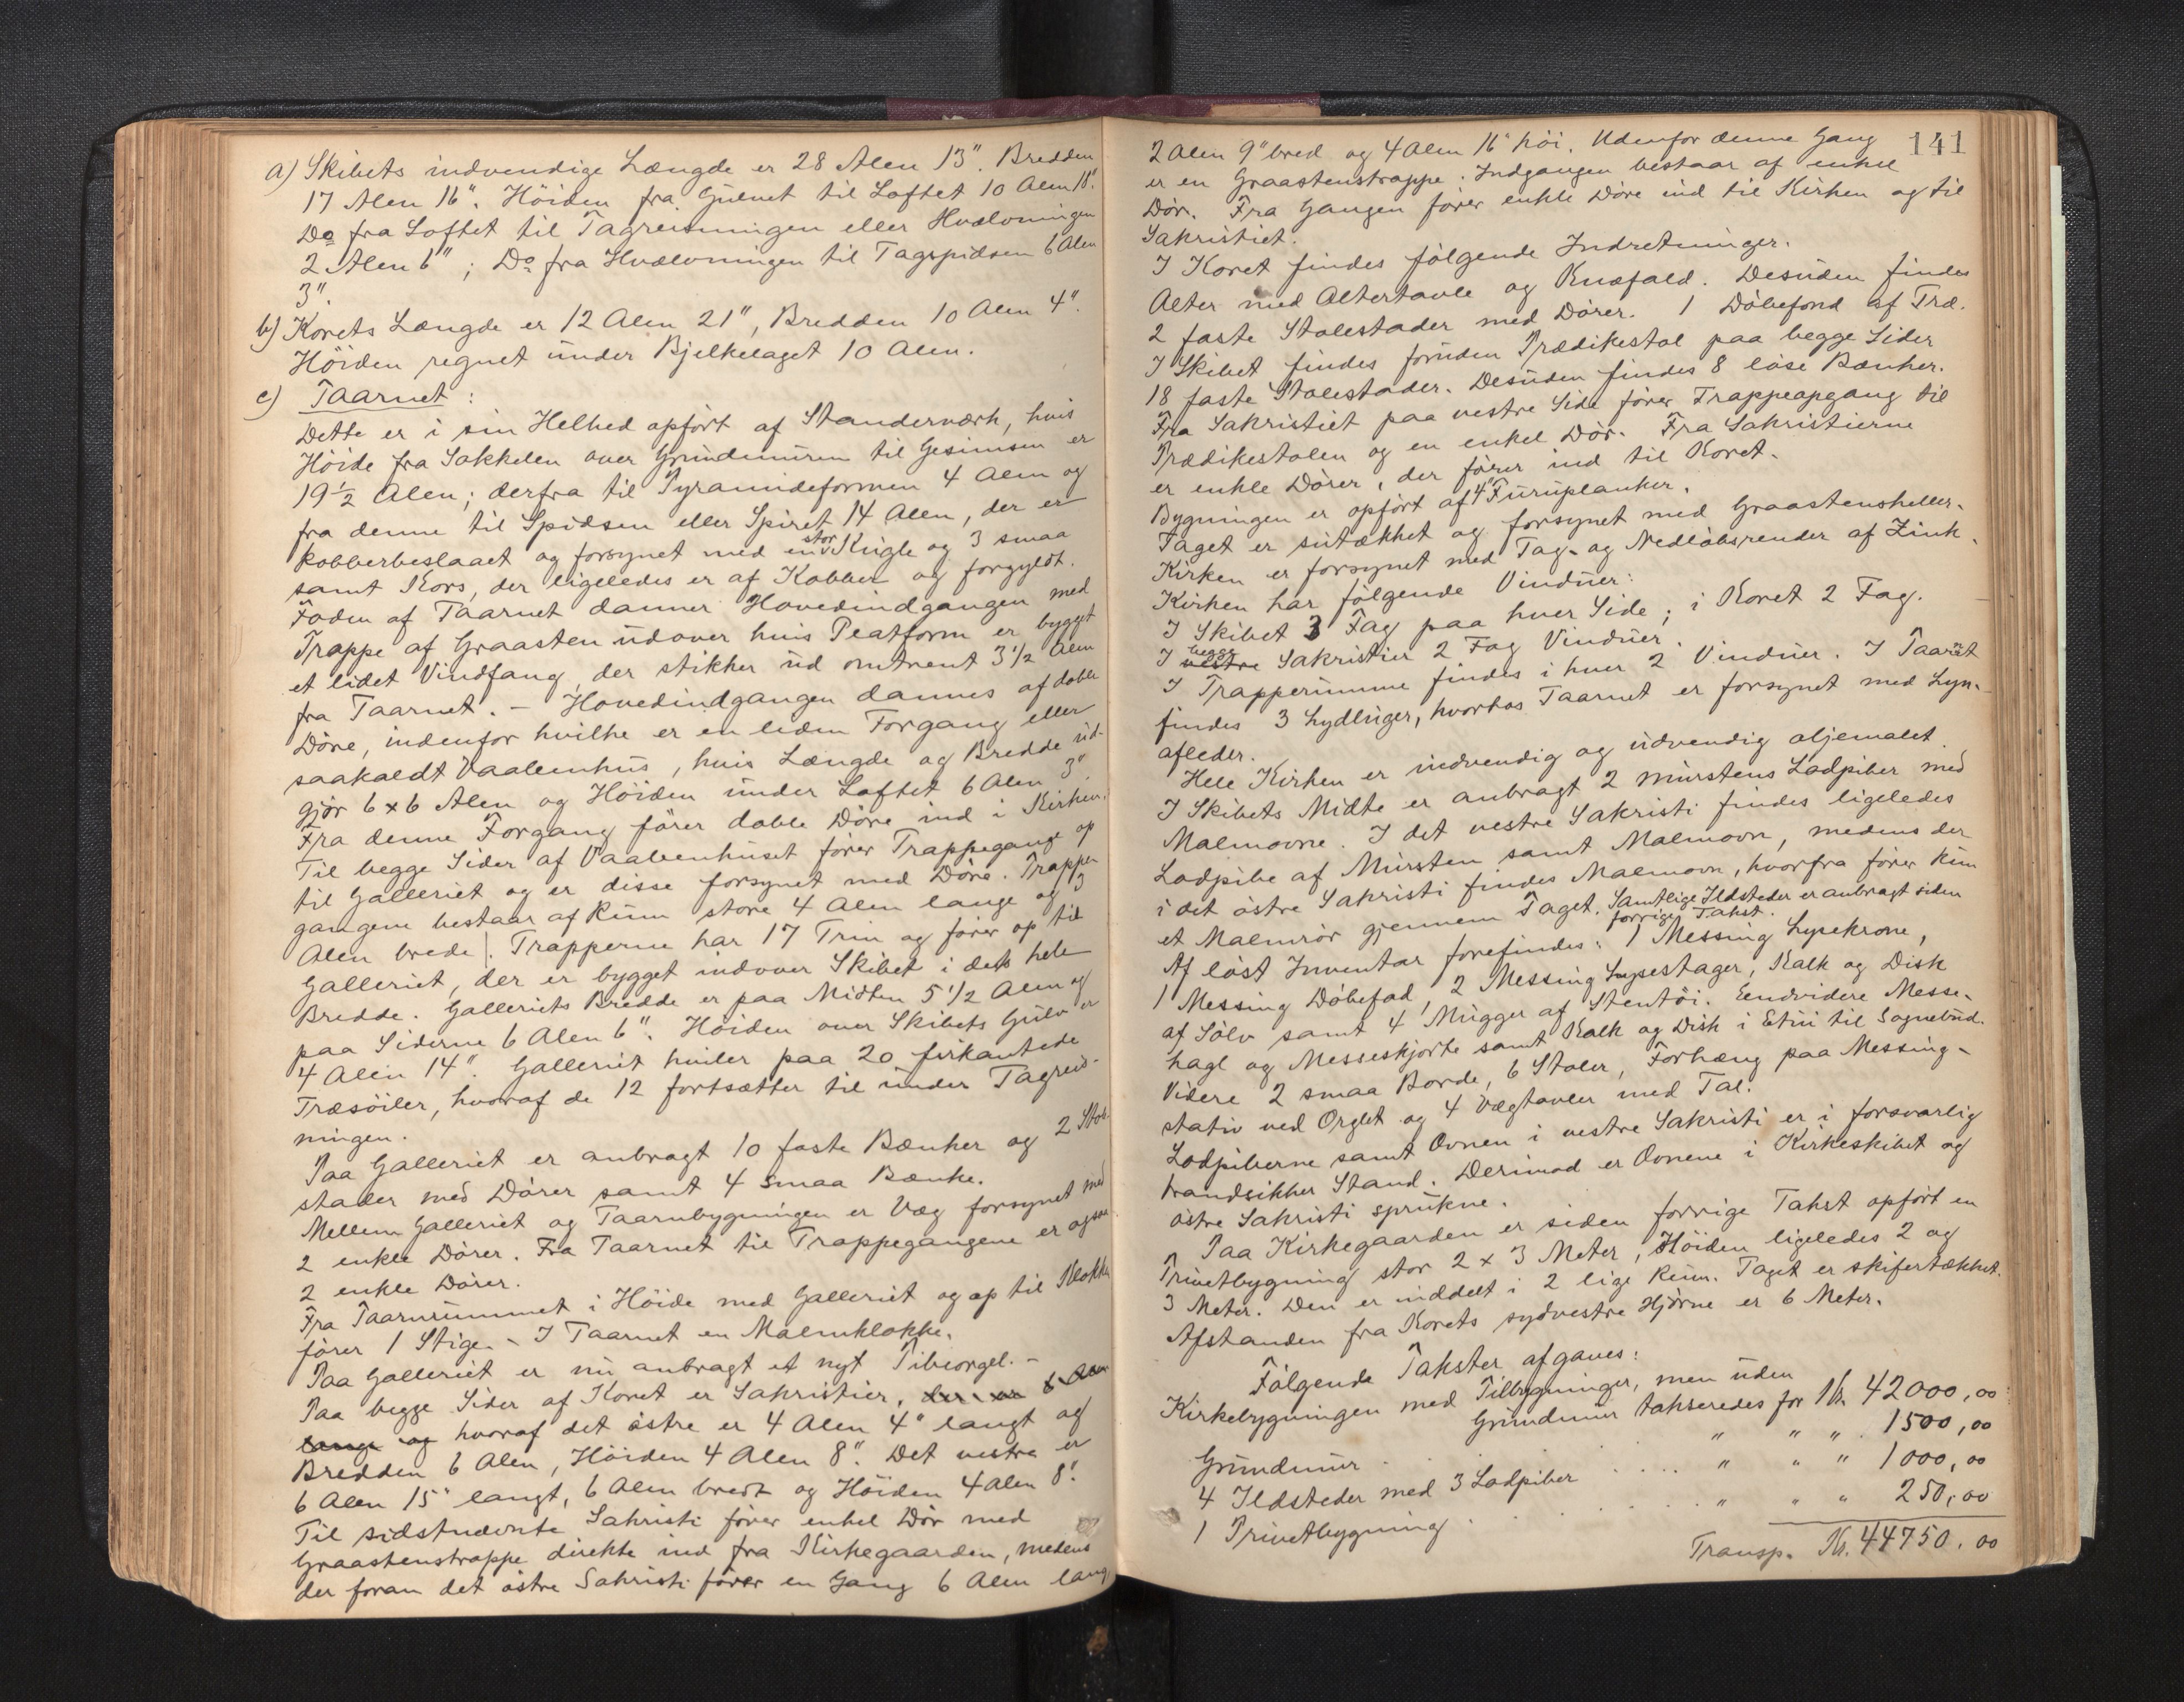 a) Skibets indvendige Længde er 28 Alen 13". Bredden
17 Alen 16". Höiden fra Gulvet til Loftet 10 Alen 18".
Do fra Loftet til Tagreisningen eller Hvælvningen
2 Alen 6"; Do fra Hvælvningen til Tagspidsen 6 Alen
3".
b) Korets Længde er 12 Alen 21", Bredden 10 Alen 4".
Höiden regnet under Bjelkelaget 10 Alen.
c) Taarnet:
Dette er i sin Helhed opfört af Standerværk, hvis
Höide fra Sokkelen over Grundmuren til Gesimsen er
19 1/2 Alen; derfra til Pyramideformen 4 Alen og
fra denne til Spidsen eller Spiret 14 Alen, der er
kobberbeslaaet og forsynet med en stor Kugle og 3 smaa
samt Kors, der ligeledes er af Kobber og forgyldt.
Foden af Taarnet danner Hovedindgangen med
Trappe af Graasten udover hvis Platform er bygget
et lidet Vindfang, der stikker ud omtrent 3 1/2 Alen
fra Taarnet. – Hovedindgangen dannes af doble
Döre, indenfor hvilke er en liden Forgang eller
saakaldt Vaabenhus, hvis Længde og Bredde ud-
gjör 6 x 6 Alen og Höiden under Loftet 6 Alen 3".
Fra denne Forgang förer doble Döre ind i Kirken.
Til begge Sider af Vaabenhuset förer Trappegange op
til Galleriet og er disse forsynet med Döre. Trappe-
gangene bestaar af Rum store 4 Alen lange og 3
Alen brede. Trapperne har 17 Trin og förer op til
Galleriet, der er bygget indover Skibet i dets hele
Bredde. Galleriets Bredde er paa Midten 5 1/2 Alen og
paa Siderne 6 Alen 6". Höiden over Skibets Gulv er
4 Alen 14". Galleriet hviler paa 20 firkantede
Træsöiler, hvoraf de 12 fortsætter til under Tagreis-
ningen.
Paa Galleriet er anbragt 10 faste Bænker og 2 Stole-
stader med Dörer samt 4 smaa Bænke.
Mellem Galleriet og Taarnbygningen er Væg forsynet med
2 enkle Dörer. Fra Taarnet til Trappegangene er ogsaa
2 enkle Dörer.
Fra Taarnrummet i Höide med Galleriet og op til Klokken
förer 1 Stige. – I Taarnet en Malmklokke.
Paa Galleriet er nu anbragt et nyt Pibeorgel. –
Paa begge Sider af Koret er Sakristier, der er 6 Alen
lange og hvoraf det östre er 4 Alen 4" langt og
Bredden 6 Alen, Höiden 4 Alen 8". Det vestre er
6 Alen 15" langt, 6 Alen bredt og Höiden 4 Alen 8".
Til sidstnævnte Sakristi förer enkel Dör med
Graastenstrappe direkte ind fra Kirkegaarden, medens
der foran det östre Sakristi förer en Gang 6 Alen lang,
141
2 Alen 9" bred og 4 Alen 16" höi. Udenfor denne Gang
er en Graastenstrappe. Indgangen bestaar af enkel
Dör. Fra Gangen förer enkle Döre ind til Kirken og til
Sakristiet.
I Koret findes fölgende Indretninger.
Alter med Altertavle og Knæfald. Desuden findes
2 faste Stolestader med Dörer. 1 Döbefond af Træ.
I Skibet findes foruden Prædikestol paa begge Sider
18 faste Stolestader. Desuden findes 8 löse Bænker.
Fra Sakristiet paa vestre Side förer Trappeopgang til
Prædikestolen og en enkel Dör. Fra Sakristierne
er enkle Dörer, der förer ind til Koret.
Bygningen er opfört af 4" Furuplanker.
Taget er sutækket og forsynet med Graastensheller.
Kirken er forsynet med Tag- og Nedlöbsrender af Zink.
Kirken har fölgende Vinduer:
I Skibet 3 Fag paa hver Side; i Koret 2 Fag.
I vestre begge Sakristier 2 Fag Vinduer.
I Trapperumme findes i hver 2 Vinduer. I Taarnet
findes 3 Lydluger, hvorhos Taarnet er forsynet med Lyn-
afleder.
Hele Kirken er indvendig og udvendig oljemalet.
I Skibets Midte er anbragt 2 murstens Ladpiber med
Malmovne. I det vestre Sakristi findes ligeledes
Ladpibe af Mursten samt Malmovn, medens der
i det östre Sakristi findes Malmovn, hvorfra förer kun
et Malmrör gjennem Taget. Samtlige Ildsteder er anbragt siden
forrige Takst.
Af löst Inventar forefindes: 1 Messing Lysekrone,
1 Messing Döbefad, 2 Messing Lysestager, Kalk og Disk
af Sölv samt 4 Mugger af Stentöi. Eendvidere Messe-
hagl og Messeskjorte samt Kalk og Disk i Etui til Sognebud.
Videre 2 smaa Borde, 6 Stoler, Forhæng paa Messing-
stativ ved Orglet og 4 Vægtavler med Tal.
Ladpiberne samt Ovnen i vestre Sakristi er i forsvarlig
brandsikker Stand. Derimod er Ovnene i Kirkeskibet og
östre Sakristi sprukne.
Paa Kirkegaarden er siden forrige Takst opfört en
Privetbygning stor 2 x 3 Meter, Höiden ligeledes 2 og
3 Meter. Den er inddelt i 2 lige Rum. Taget er skifertækket.
Afstanden fra Korets sydvestre Hjörne er 6 Meter.
Fölgende Takster afgaves:
Kirkebygningen med Tilbygninger, men uden
Grundmur takseredes for Kr. 42000,00
Grundmur . . " " " 1500,00
4 Ildsteder med 3 Ladpiber . . . . " " " 1000,00
1 Privetbygning . . . . . " " " 250,00
Transp. Kr. 44750,00